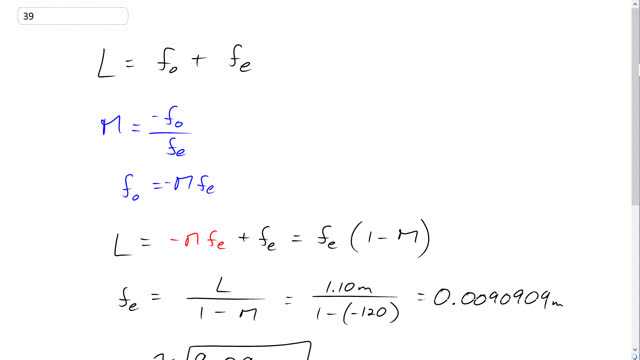 39
L = f_o + f_e
M = -f_o / f_e
f_o = -M f_e
L = -M f_e + f_e = f_e (1 - M)
f_e = L / (1 - M) = 1.10 m / (1 - (-120)) = 0.0090909 m